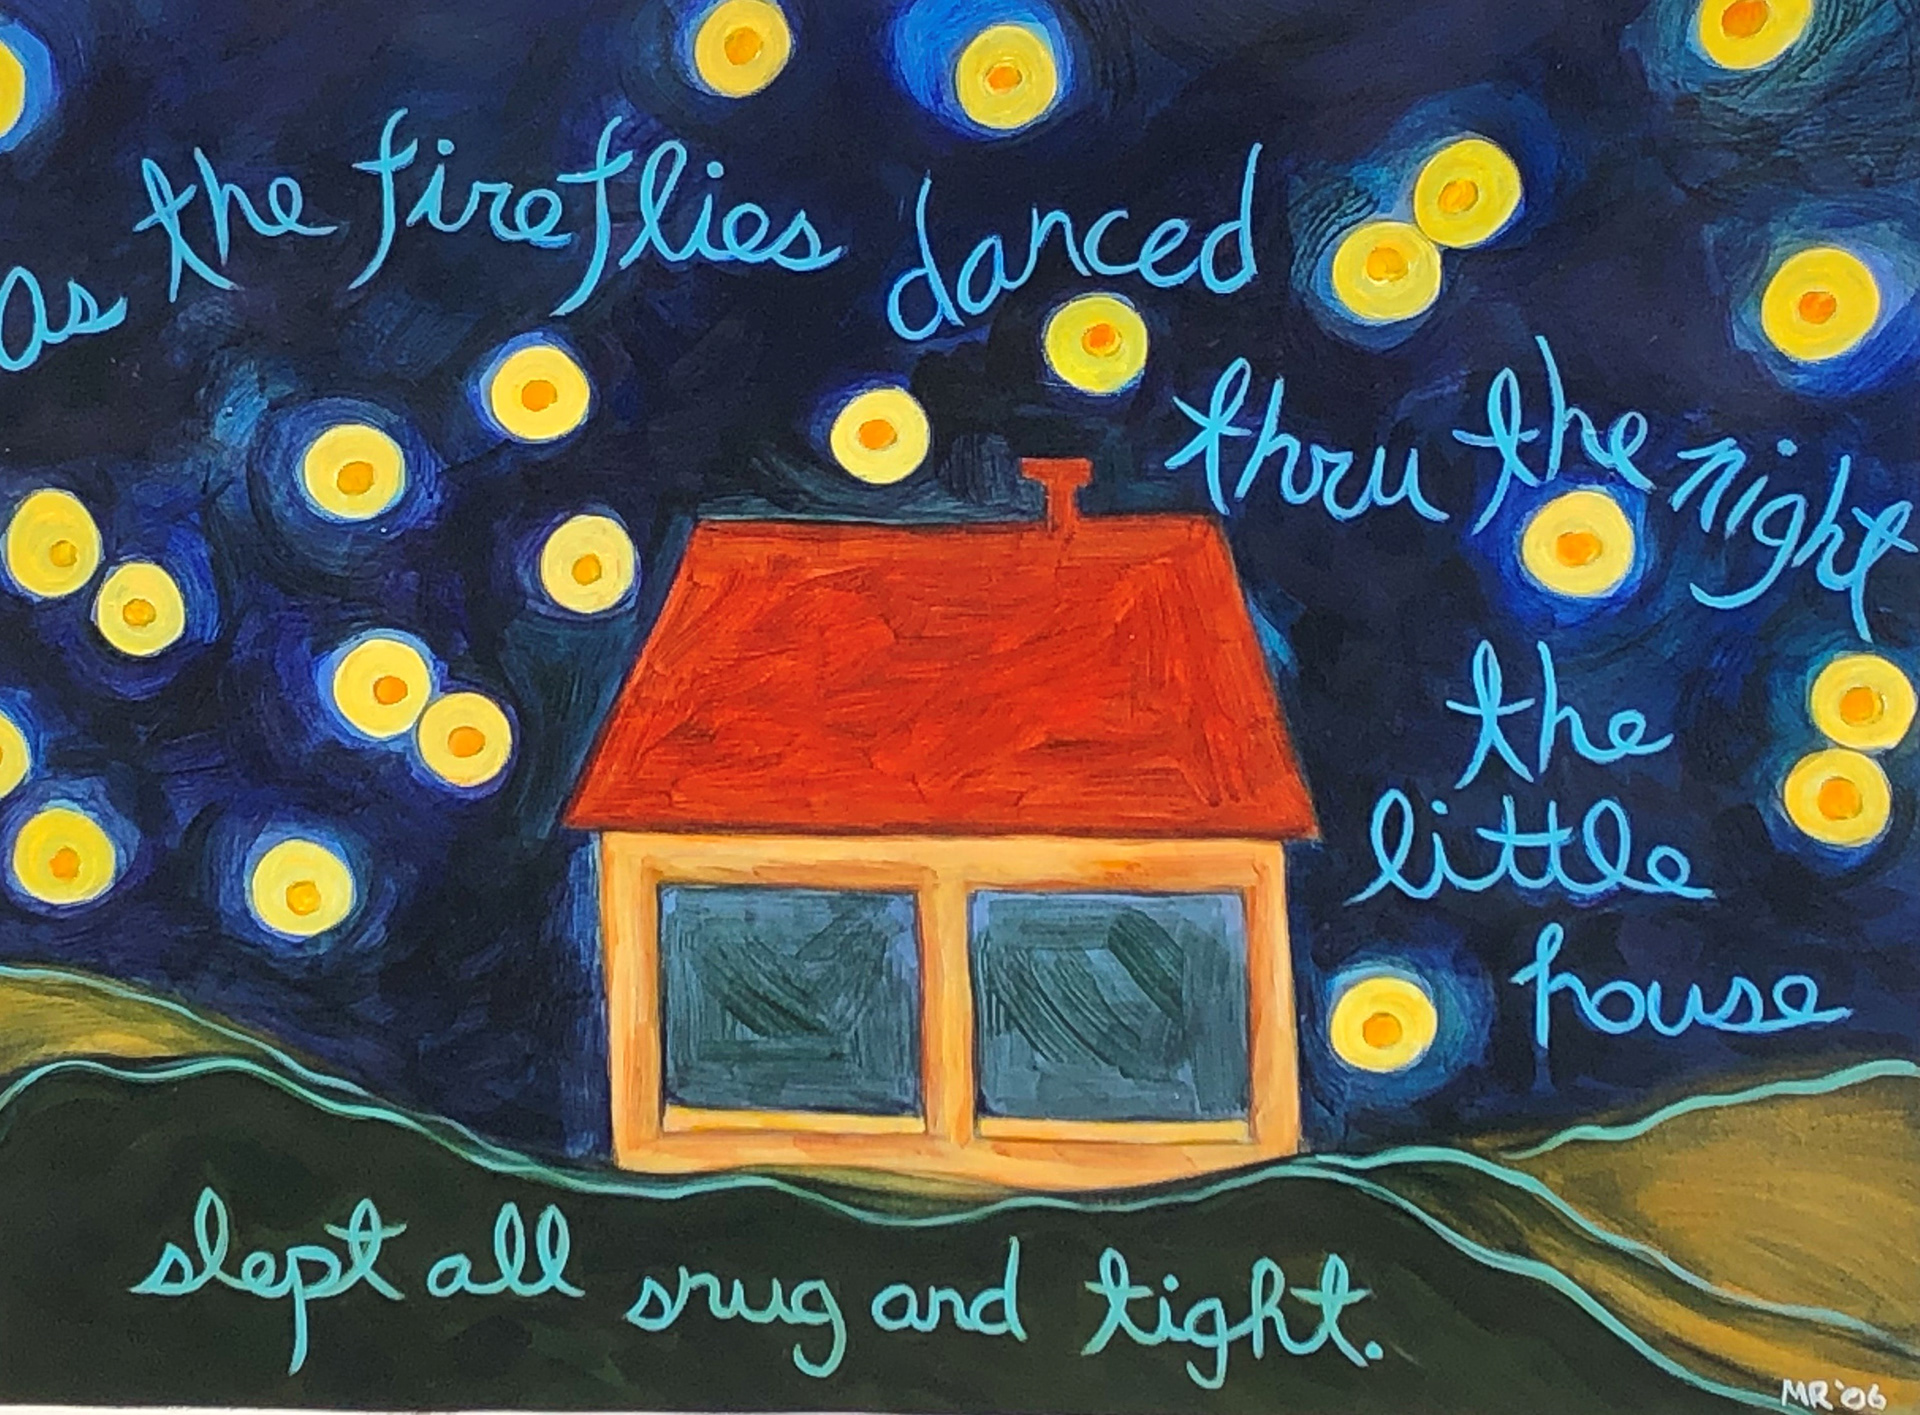 as the fireflies danced
thru the night
the
little
house
slept all snug and tight.
MR '06